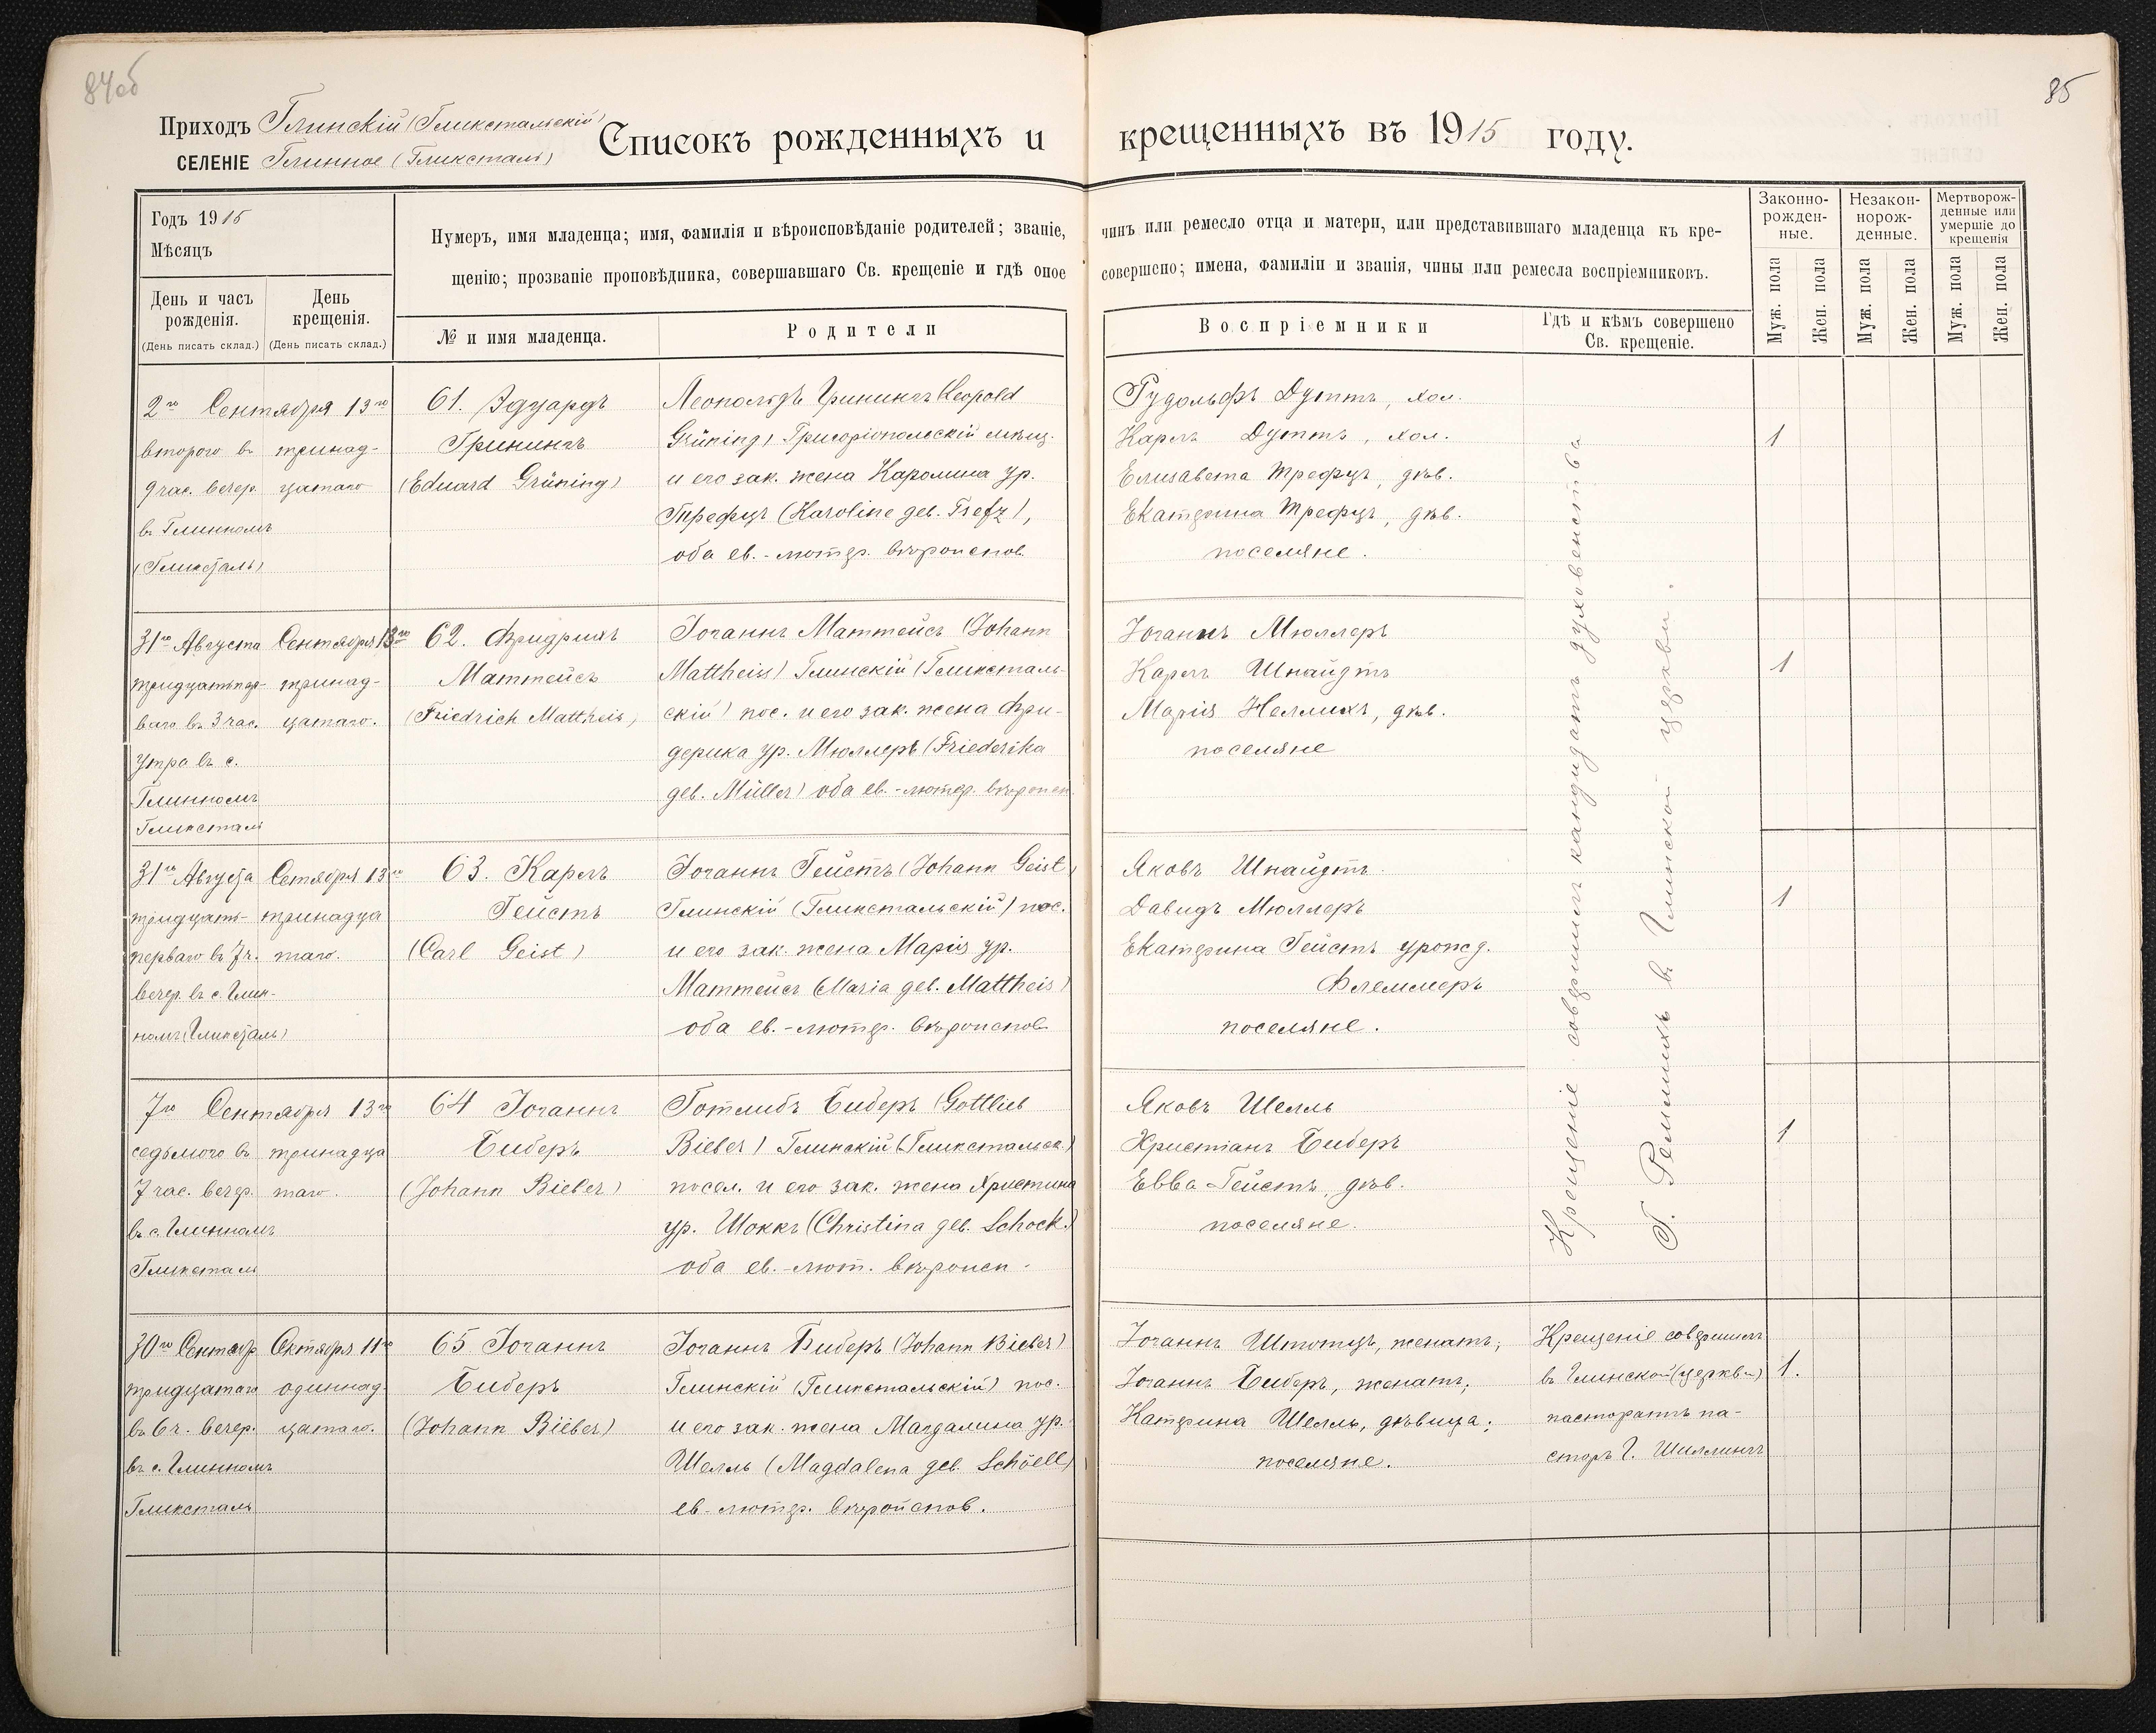 84об
85
Приходъ Глинскій (Гликстальскій)
СЕЛЕНІЕ Глинное (Гликсталь)
Списокъ рожденныхъ и крещенныхъ въ 1915 году.
Годъ 1915
Мѣсяцъ
День и часъ рожденія.
(День писать склад.)
День крещенія.
(День писать склад.)
Нумеръ, имя младенца; имя, фамилія и вѣроисповѣданіе родителей; званіе, чинъ или ремесло отца и матери, или представившаго младенца къ кре-
щенію; прозваніе проповѣдника, совершавшаго Св. крещеніе и гдѣ оное совершено; имена, фамиліи и званія, чины или ремесла воспріемниковъ.
№ и имя младенца.
Родители
Воспріемники
Гдѣ и кѣмъ совершено
Св. крещеніе.
Законно-
рожден-
ные.
Незакон-
норож-
денные.
Мертворож-
денные или
умершіе до
крещенія
Муж. пола
Жен. пола
Муж. пола
Жен. пола
Муж. пола
Жен. пола
2го Сентября 13го
второго въ
9 час. вечер.
въ Глинномъ
(Гликсталь)
тринад-
цатаго
61. Эдуардъ
Гринингъ
(Eduard Grüning)
Леопольдъ Гринингъ (Leopold
Grüning) Григоріопольскій мѣщ.
и его зак. жена Каролина ур.
Трефцъ (Karoline geb. Trefz),
оба ев.-лютер. вѣроиспов.
Рудольфъ Дуттъ, хол.
Карлъ Дуттъ, хол.
Елисавета Трефцъ, дѣв.
Екатерина Трефцъ, дѣв.
поселяне.
1
31го Августа
тридцатьпер-
ваго въ 3 час.
утра въ с.
Глинномъ
Гликсталь
Сентября 13го
тринад-
цатаго.
62. Фридрихъ
Маттейсъ
(Friedrich Mattheis)
Іоганнъ Маттейсъ (Johann
Mattheiss) Глинскій (Гликсталь-
скій) пос. и его зак. жена Фри-
дерика ур. Мюллеръ (Friederika
geb. Müller) оба ев.-лютер. вѣроисп.
Іоганнъ Мюллеръ
Карлъ Шнайдтъ
Марія Неллихъ, дѣв.
поселяне
1
31го Августа
тридцать-
перваго въ 7 ч.
вечер. въ с. Глин-
номъ (Гликсталь)
Сетября 13го
тринадца
таго.
63. Карлъ
Гейстъ
(Carl Geist)
Іоганнъ Гейстъ (Johann Geist)
Глинскій (Гликстальскій) пос.
и его зак. жена Марія ур.
Маттейсъ (Maria geb. Mattheis)
оба ев.-лютер. вѣроиспов.
Яковъ Шнайдтъ
Давидъ Мюллеръ
Екатерина Гейстъ урожд.
Флеммеръ
поселяне.
1
7го Сентября 13го
седьмого въ
7 час. вечер.
въ с. Глинномъ
Гликсталь
тринадца
таго.
64 Іоганнъ
Биберъ
(Johann Bieber)
Готлибъ Биберъ (Gottlieb
Bieber) Глинскій (Гликстальск.)
посел. и его зак. жена Христина
ур. Шоккъ (Christina geb. Schock.)
оба ев.-лют. вѣроисп.
Яковъ Шелль
Христіанъ Биберъ
Евва Гейстъ, дѣв.
поселяне.
1
Крещеніе совершилъ кандидатъ духовенства
Г. Реммихъ въ Глинской церкви.
30го Сентябр
тридцатаго
въ 6 ч. вечер.
въ с. Глинномъ
Гликсталь
Октября 11го
одиннад-
цатаго.
65 Іоганнъ
Биберъ
(Johann Bieber)
Іоганнъ Биберъ (Johann Bieber)
Глинскій (Гликстальскій) пос.
и его зак. жена Магдалина ур.
Шелль (Magdalena geb. Schöell)
ев-лютер. вѣроиспов.
Іоганнъ Штотцъ, женатъ;
Іоганнъ Биберъ, женатъ;
Катерина Шелль, дѣвица;
поселяне.
Крещеніе совершилъ
въ Глинской (церкви)
пасторатъ па-
сторъ Г. Шиллингъ
1.